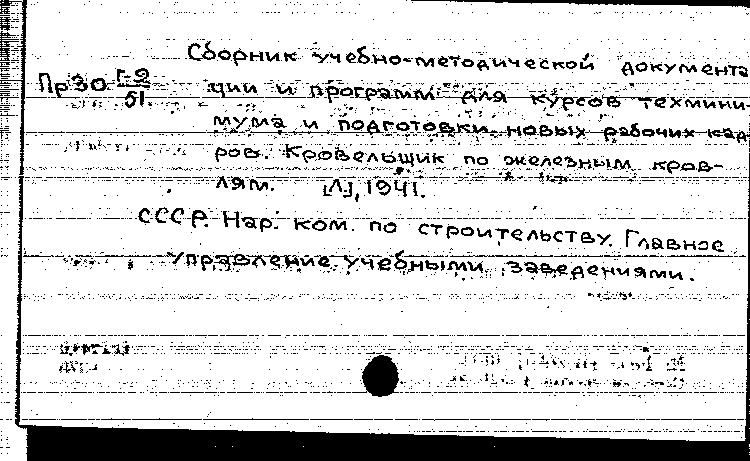 Сборник учебно-методической документа
Пр30 Г-9/51. ции и программ для курсов техмини-
мума и подготовки новых рабочих кад
ров. Кровельщик по железным кров-
лям. [Л], 1941.
СССР. Нар. ком. по строительству. Главное
управление учебными заведениями.